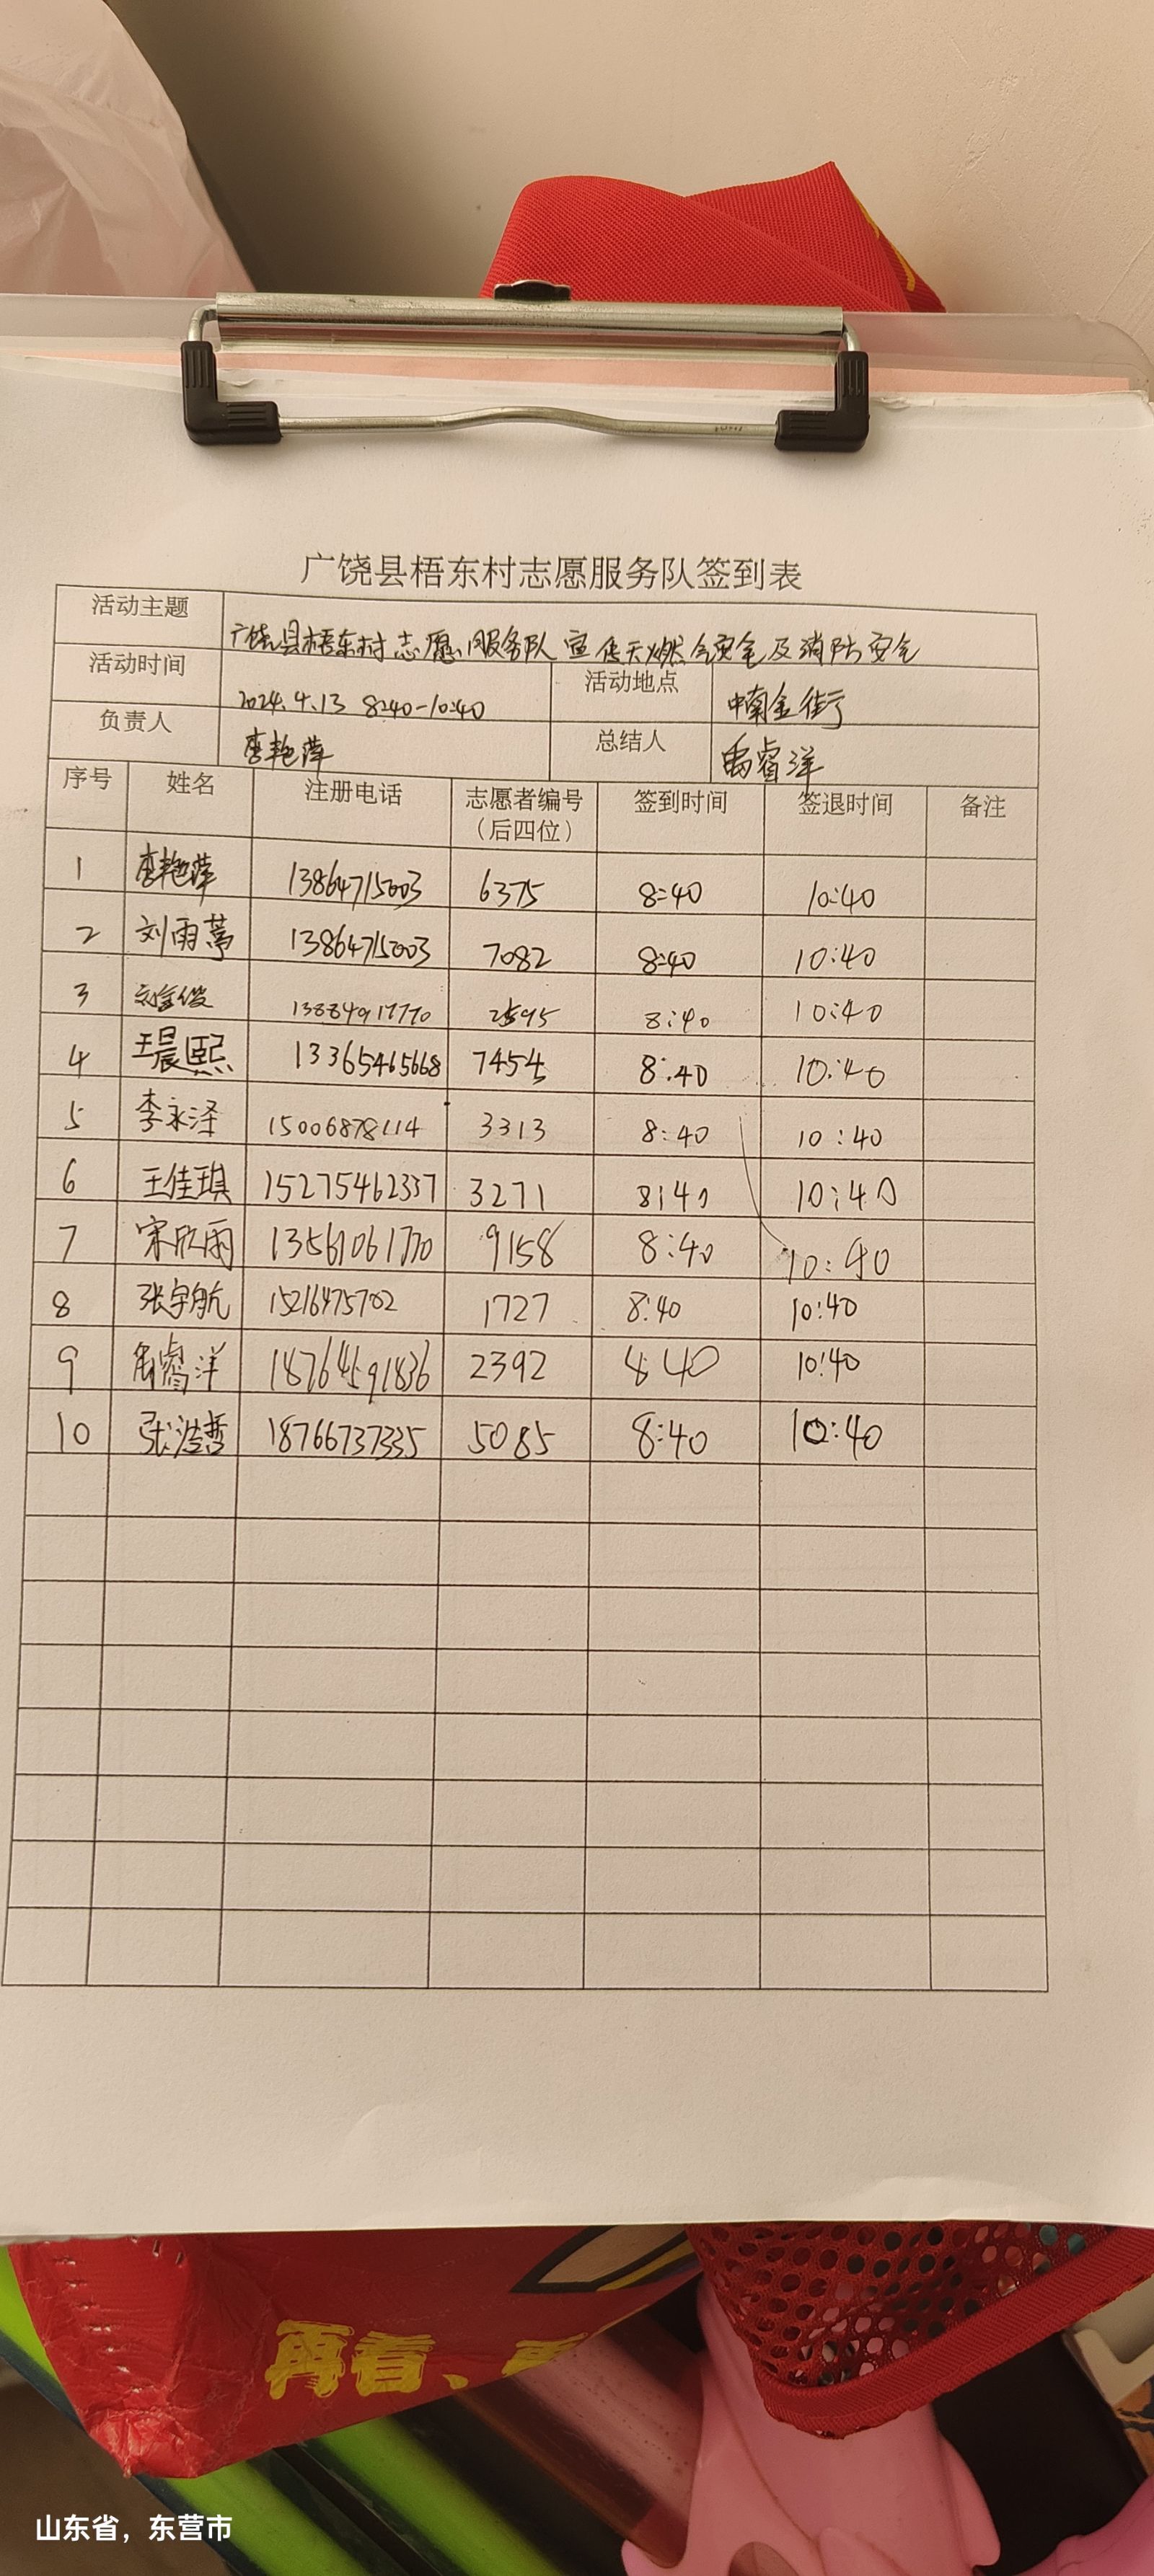 广饶县梧东村志愿服务队签到表
活动主题 广饶县梧东村志愿服务队宣传天燃气安全及消防安全
活动时间 2024.4.13 8:40-10:40 活动地点 中南金街
负责人 李艳萍 总结人 禹睿洋
序号 姓名 注册电话 志愿者编号 签到时间 签退时间 备注
（后四位）
1 李艳萍 13864715003 6375 8:40 10:40
2 刘雨 13864715003 7082 8:40 10:40
3 8:40 10:40
4 王晨熙 13365465668 7454 8:40 10:40
5 李永泽 15006878114 3313 8:40 10:40
6 王佳琪 15275462337 3271 8:40 10:40
7 宋欣雨 13561061770 9158 8:40 10:40
8 张宇航 15216475702 1727 8:40 10:40
9 禹睿洋 18764591836 2392 8:40 10:40
10 张浩哲 18766737335 5085 8:40 10:40
再看、
山东省，东营市